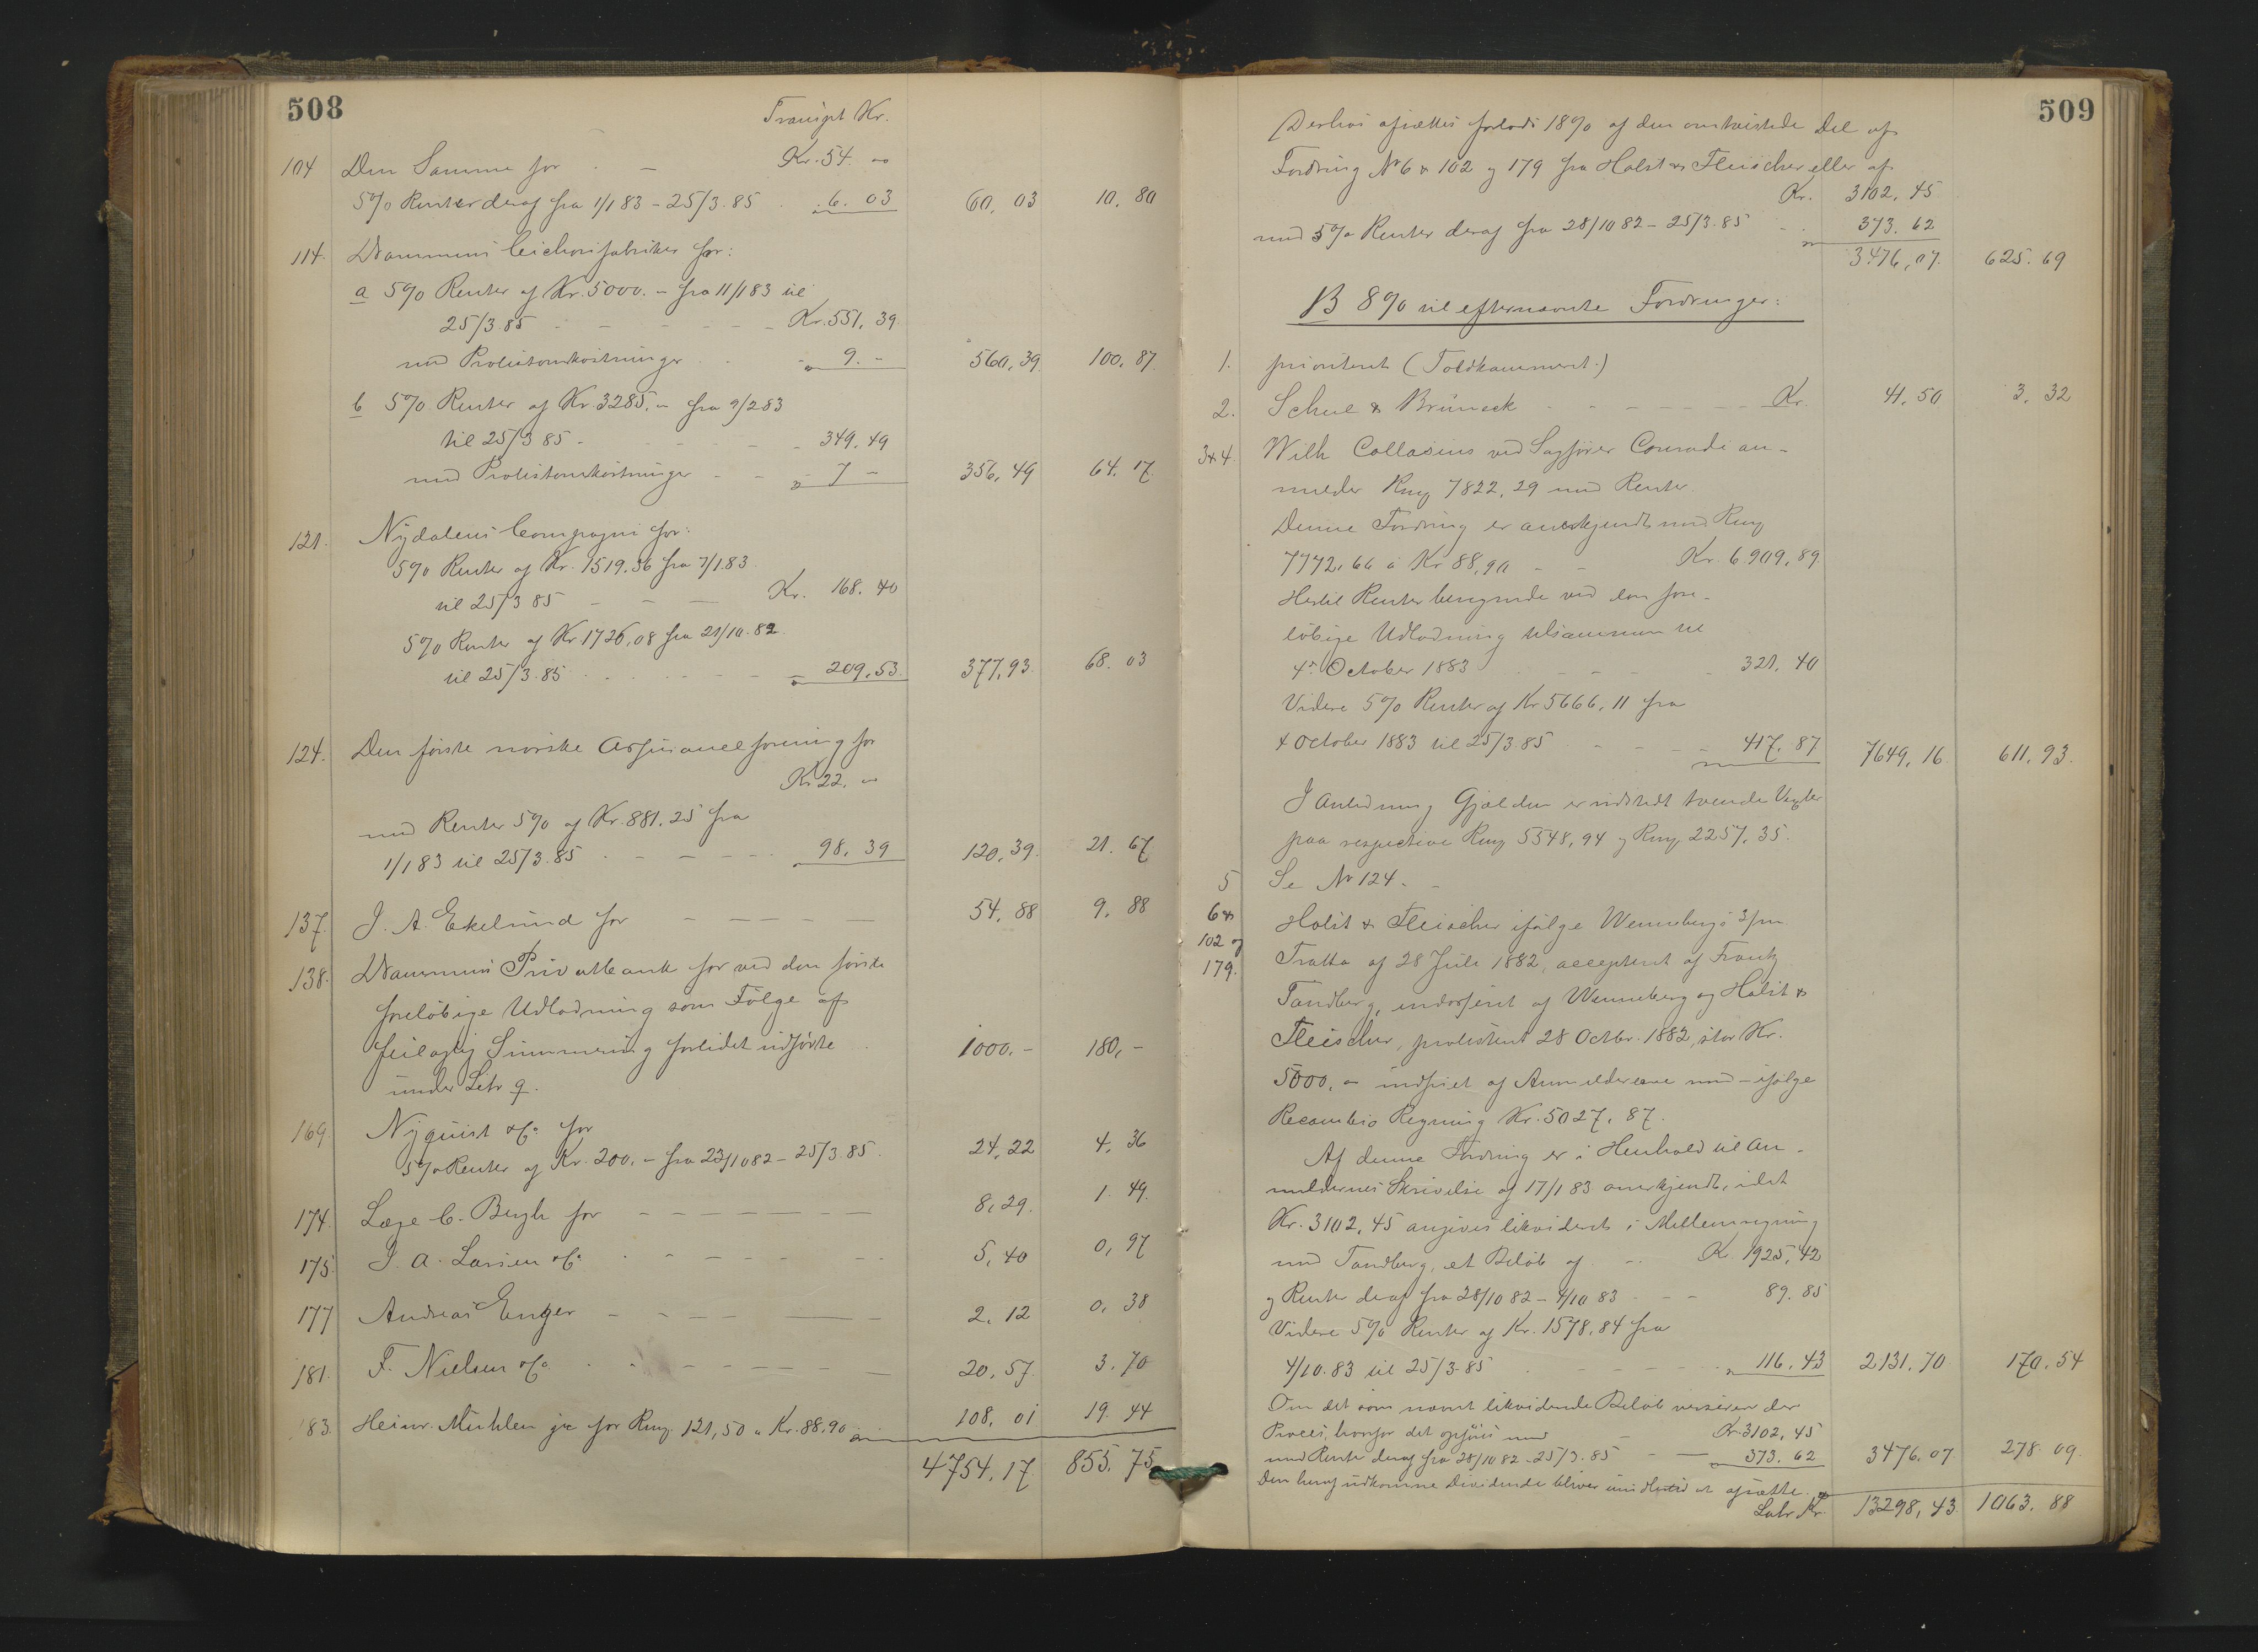 508
Transpt Kr.
104 Den Samme for - - Kr. 54. "
5% Renter deraf fra 1/1 83 - 25/3.85 . 6. 03 60, 03 10, 80
114. Drammens Cichorifabriker for:
a 5% Renter af Kr. 5000. - fra 11/1 83 til
25/3.85 - - - - - Kr. 551, 39
med Protestomkostninger - " 9. - 560, 39 100, 87
b 5% Renter af Kr. 3285. " fra 9/2 83
til 25/3 85 - - - - - 349. 49
med Protestomkostninger - - " 7 - 356, 49 64. 17
121. Nydalens Compagni for:
5% Renter af Kr. 1519.36 fra 7/1.83
til 25/3 85 - - - Kr. 168. 40
5% Renter af Kr. 1726,08 fra 21/10.82
til 25/3.85 - - - - - " 209,53. 377,93. 68. 03
124. Den første norske Assuranceforening for
Kr 22. "
med Renter 5% af Kr. 881.25 fra
1/1 83 til 25/3.85 - - - - 98, 39 120, 39. 21. 67
137. J. A. Ekelund for - - - - - 54, 88 9, 88
138. Drammens Privatbank for ved den første
foreløbige Udlodning som Følge af
feilagtig Summering forlidet udførte 1000. - 180, -
under Litr q.
169. Nyquist & Co for
5% Renter af Kr. 200. - fra 23/10 82 - 25/3.85. 24, 22 4, 36
174. Læge C. Bugh for - - - - - 8, 29. 1. 49.
175. J. A. Larsen & Co - - - - - 5, 40 0, 97
177 Andreas Enger - - - - - 2. 12 0, 38
181. F. Nielsen & Co. - - - - - 20, 57. 3. 70
183. Heinr. Mühlen jr for Rmg. 121,50 a Kr. 88.90 " 108, 01 19. 44
4754, 17. 855. 75
509
Derhos afsættes forlods 18% af den omtvistede Del af
Fordring No 6 & 102 og 179 fra Holst & Fleischer eller af
Kr. 3102, 45
med 5% Renter deraf fra 28/10 82 - 25/3.85 - " 373. 62
3476, 07. 625. 69
B 8% til efternævnte Fordringer:
1. prioritert (Toldkammeret.)
2. Schul & Brüneck - - - - - Kr. 41. 50 3, 32
3&4. Wilh Collasius ved Sagfører Conradi an-
melder Rmg 7822, 29 med Renter.
Denne Fordring er anerkjendt med Rmg
7772, 66 a Kr 88,90 - - Kr. 6909,89
Hertil Renter beregnede ved den fore-
løbige Udlodning tilsammen til
4de October 1883 - - - - 321, 40
Videre 5% Renter af Kr 5666, 11 fra
4 October 1883 til 25/3 85 - - - " 417, 87 7649, 16 611, 93.
I Anledning Gjælden er udstedt tvende Vexler
paa respective Rmg 5548, 94 og Rmg 2257, 35.
5 Se No 124. -
6 & 102 og 179. Holst & Fleischer ifølge Wennebergs 3/m
Tratta af 28 Juli 1882, accepteret af Frantz
Tandberg, endosseret af Wenneberg og Holst &
Fleischer, protesteret 28 Octbr. 1882, stor Kr.
5000, " indfriet af Anmelderne med - ifølge
Recambio Regning Kr. 5027, 87.
Af denne Fordring er i Henhold til An-
meldernes Skrivelse af 17/1 83 anerkjendt, idet
Kr. 3102, 45 angives likvideret i Mellemregning
med Tandberg, et Beløb af - Kr. 1925, 42
og Renter deraf fra 28/10 82 - 4/10 83 - - - 89. 85
Videre 5% Renter af Kr. 1578,84 fra
4/10.83 til 25/3.85 - - - - " 116. 43 2131. 70 170, 54
Om det som nævnt likviderede Beløb verserer der
Proces, hvorfor det opføres med - Kr. 3102, 45
med Renter deraf fra 28/10 82 - 25/3.85 - - " 373. 62 3476, 07 278. 09.
Den heraf udkomne Dividende bliver imidlertid at afsætte.
Latr Kr. 13298, 43 1063. 88